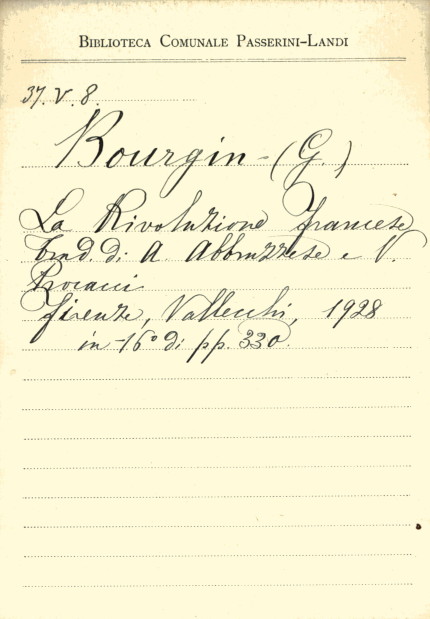 BIBLIOTECA COMUNALE PASSERINI-LANDI
37. V. 8.
Bourgin - (G.)
La Rivoluzione francese
trad. di A. Abbruzzese e V.
Procacci
Firenze, Vallecchi, 1928
in -16° di pp. 330.